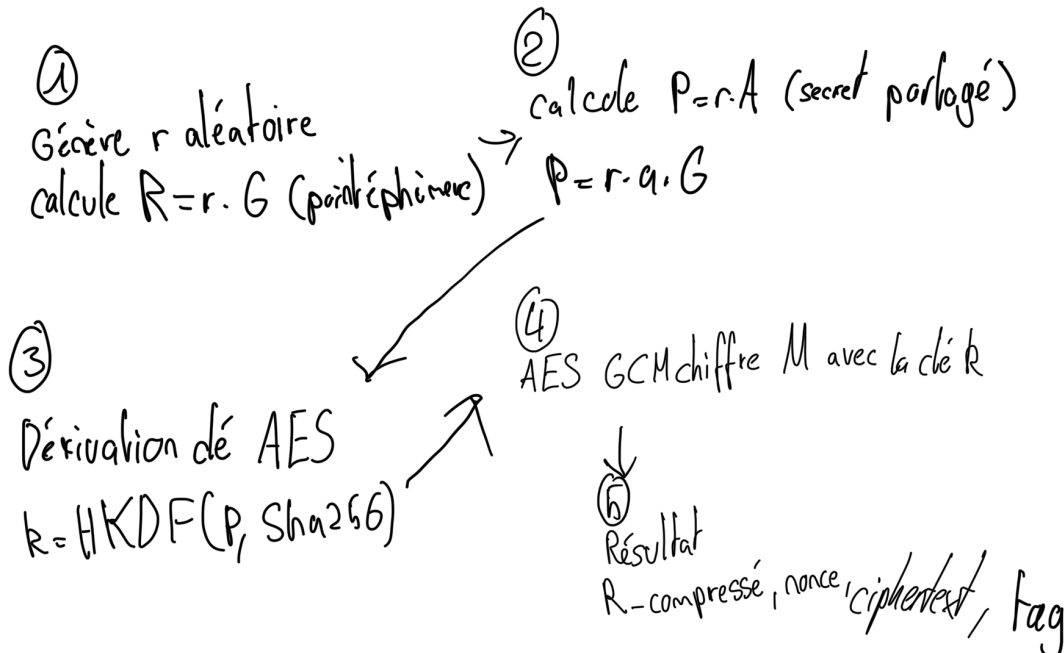 1
Génère r aléatoire
calcule R=r.G (point éphémère)
2
calcule P=r.A (secret partagé)
P=r.a.G
3
Dérivation clé AES
k=HKDF(P, Sha256)
4
AES GCM chiffre M avec la clé k
5
Résultat
R-compressé, nonce, ciphertext, tag